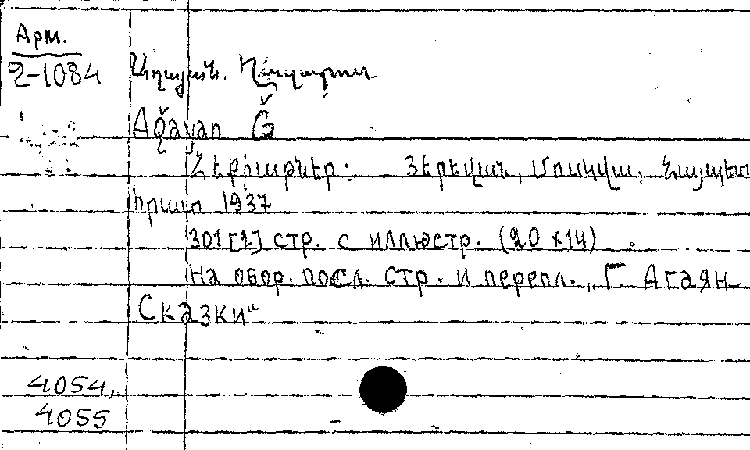 Арм.
2-1084
Աղայան. Ղազարոս
Ağayan Ğ
Հեքիաթներ: Յերեվան, Մոսկվա, Հայպետ
հրատ 1937
301 [1] стр. с иллюстр. (20 x 14)
На обор. посл. стр. и перепл. „Г. Агаян
Сказки“
4054,
4055